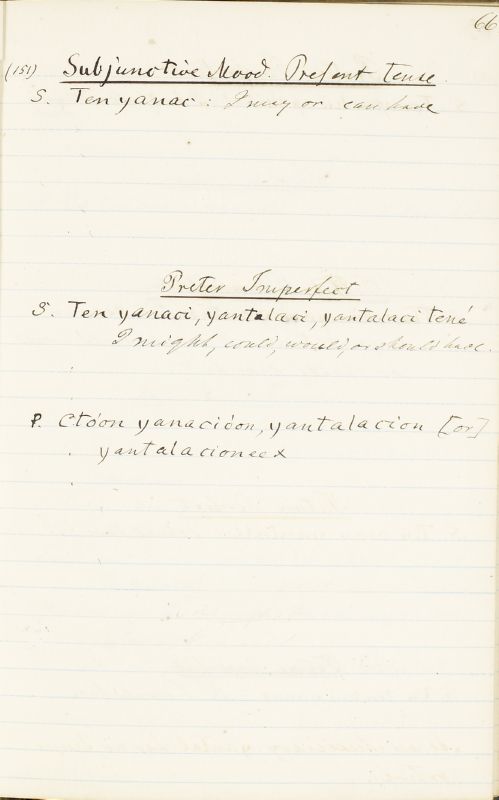 66
(151) Subjunctive Mood. Present Tense.
S. Ten yanac: I may or can have
Preter Imperfect
S. Ten yanaci, yantalaci, yantalaci tené
I might, could, would, or should have.
P. Ctóon yanacióon, yantalacion [or]
yantalacioneex